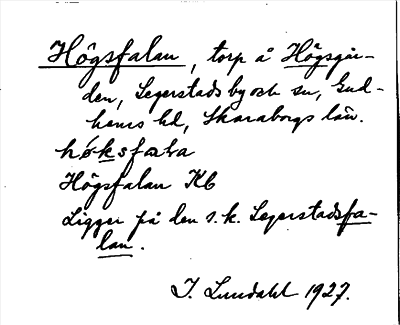 Högsfalan, torp å Högsgår-
den, Segerstads by och sn, Gud-
hems hd, Skaraborgs län.
högsfala
Högsfalan KB
Ligger på den s.k. Segerstadsfa-
lan.
I. Lundahl 1927.